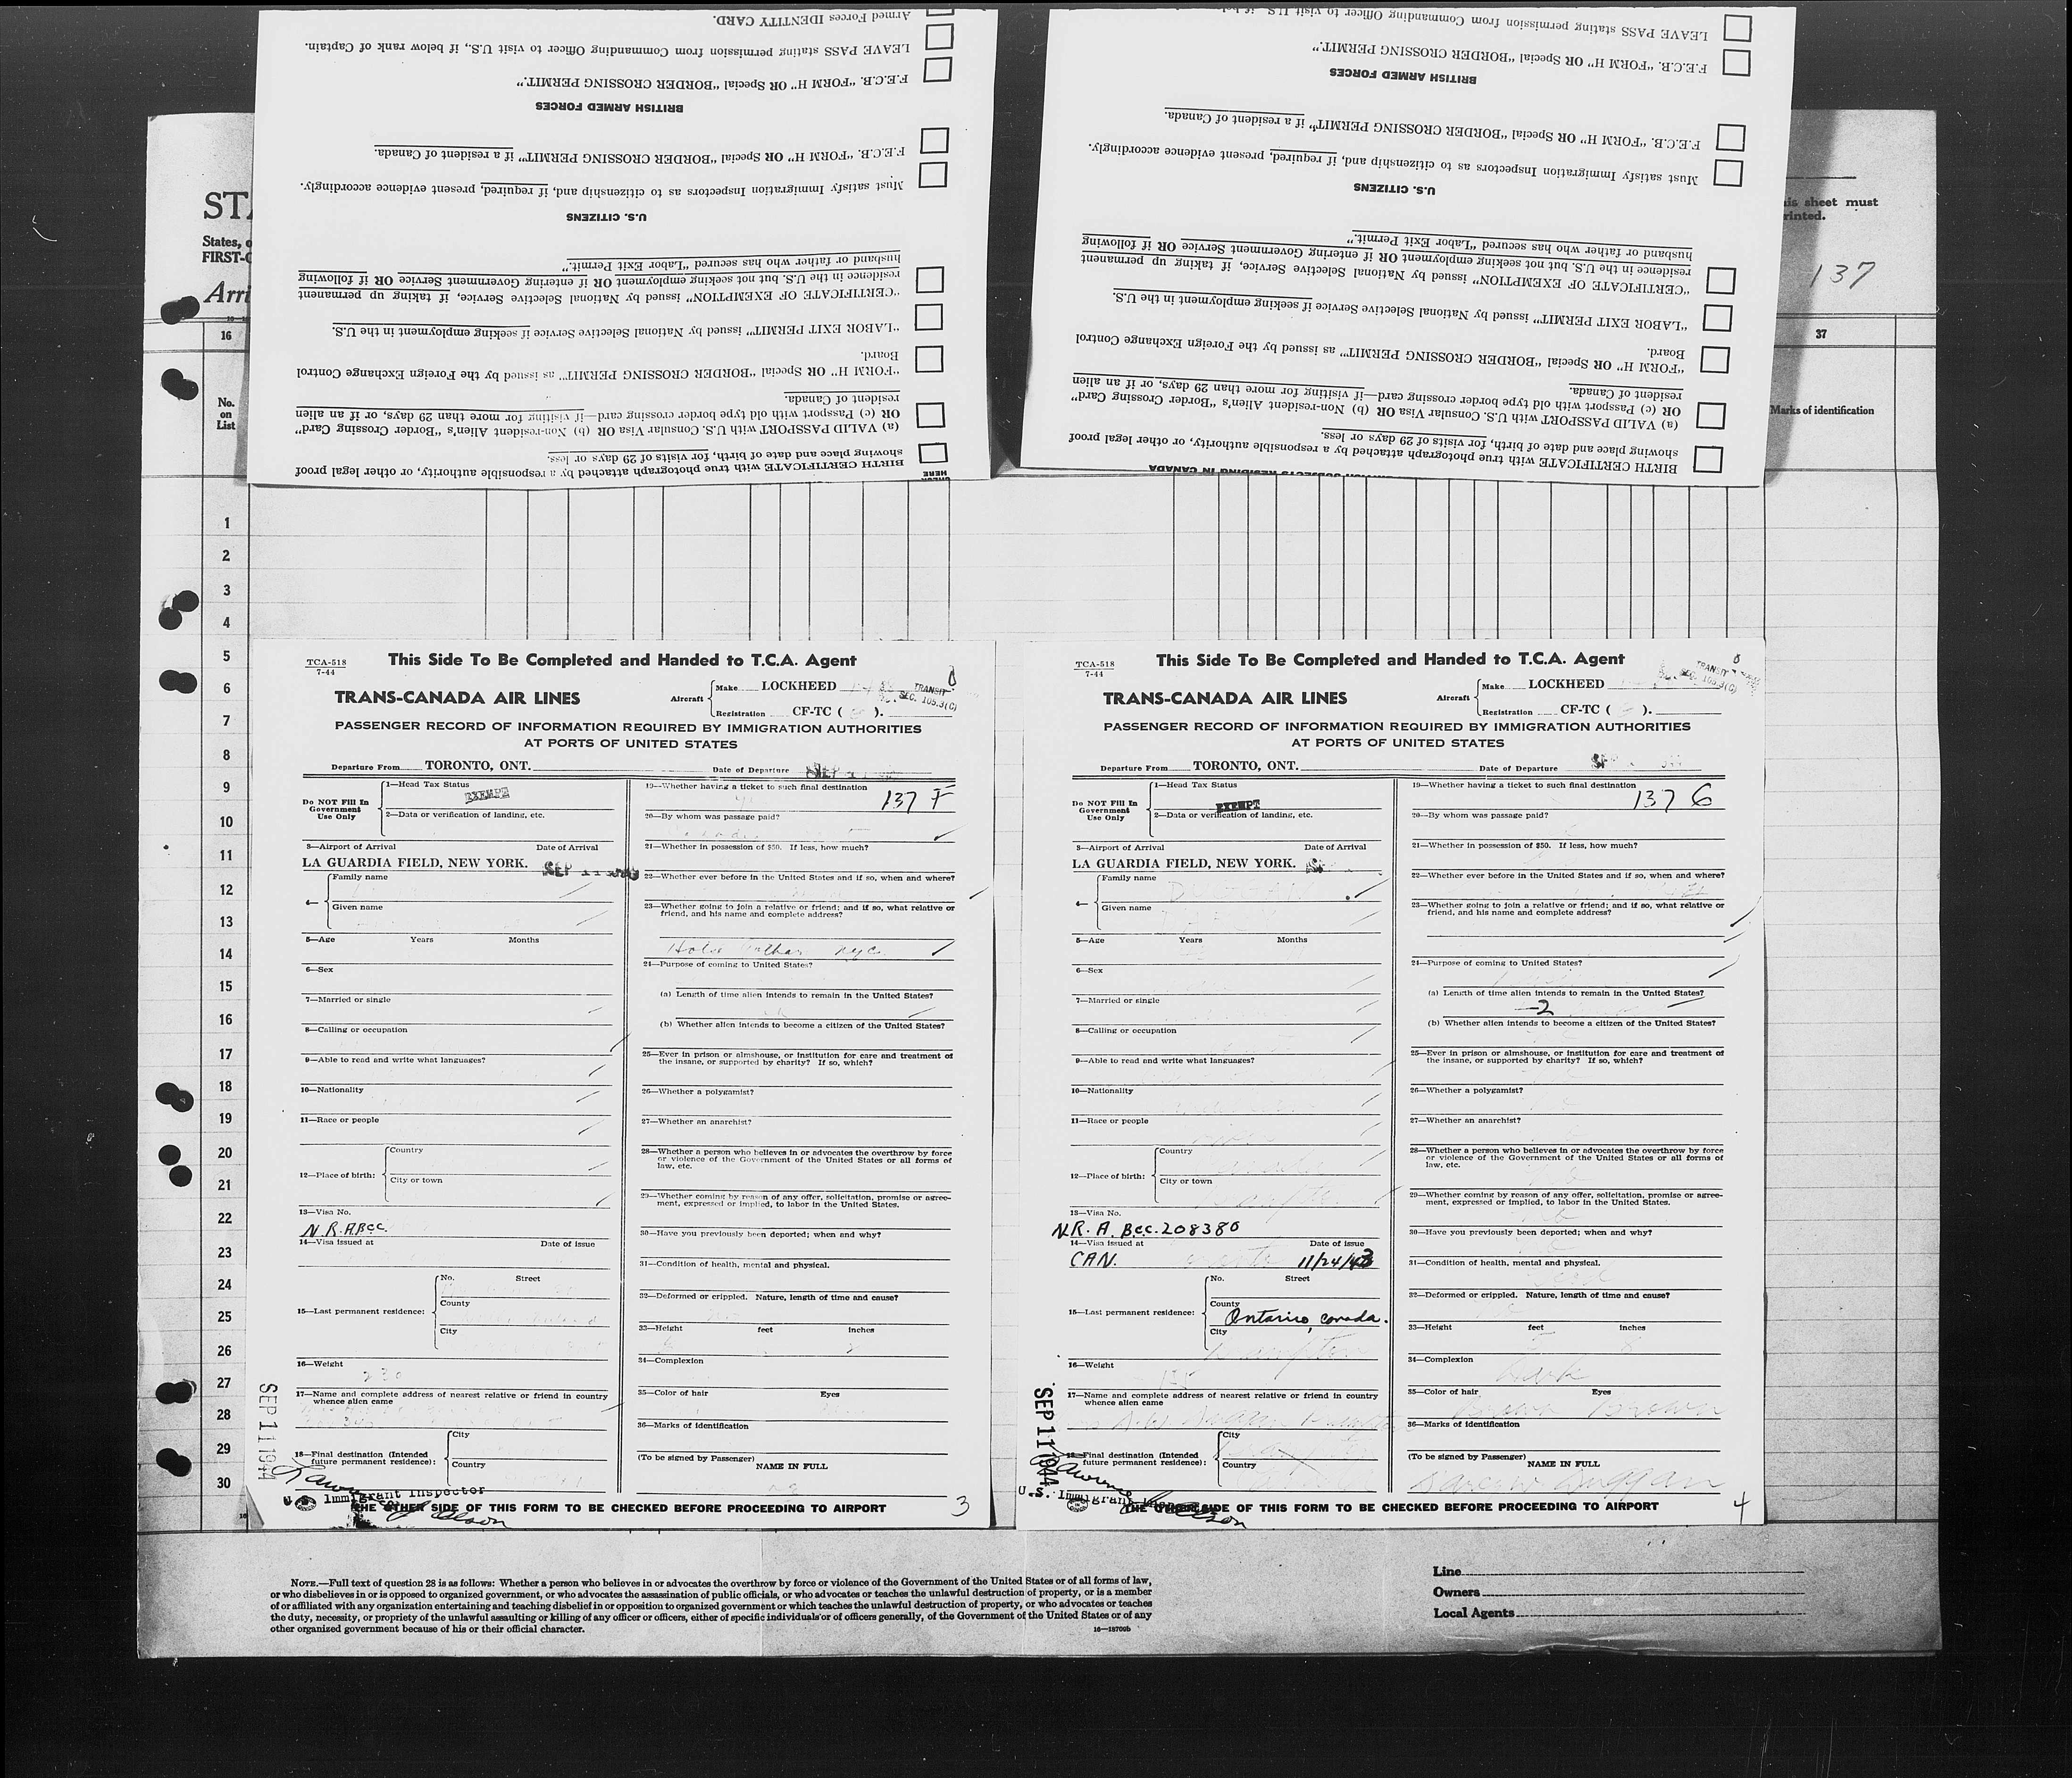 Armed Forces IDENTITY CARD.
LEAVE PASS stating permission from Commanding Officer to visit U.S., if below rank of Captain.
F.E.C.B. "FORM H" OR Special "BORDER CROSSING PERMIT."
BRITISH ARMED FORCES
F.E.C.B. "FORM H" OR Special "BORDER CROSSING PERMIT" if a resident of Canada.
Must satisfy Immigration Inspectors as to citizenship and, if required, present evidence accordingly.
U.S. CITIZENS
husband or father who has secured "Labor Exit Permit."
residence in the U.S. but not seeking employment OR if entering Government Service OR if following
"CERTIFICATE OF EXEMPTION" issued by National Selective Service, if taking up permanent
"LABOR EXIT PERMIT" issued by National Selective Service if seeking employment in the U.S.
Board.
"FORM H" OR Special "BORDER CROSSING PERMIT" as issued by the Foreign Exchange Control
resident of Canada.
OR (c) Passport with old type border crossing card—if visiting for more than 29 days, or if an alien
(a) VALID PASSPORT with U.S. Consular Visa OR (b) Non-resident Alien's "Border Crossing Card"
showing place and date of birth, for visits of 29 days or less.
BIRTH CERTIFICATE with true photograph attached by a responsible authority, or other legal proof
HERE
LEAVE PASS stating permission from Commanding Officer to visit U.S.
F.E.C.B. "FORM H" OR Special "BORDER CROSSING PERMIT."
BRITISH ARMED FORCES
F.E.C.B. "FORM H" OR Special "BORDER CROSSING PERMIT" if a resident of Canada.
Must satisfy Immigration Inspectors as to citizenship and, if required, present evidence accordingly.
U.S. CITIZENS
husband or father who has secured "Labor Exit Permit."
residence in the U.S. but not seeking employment OR if entering Government Service OR if following
"CERTIFICATE OF EXEMPTION" issued by National Selective Service, if taking up permanent
"LABOR EXIT PERMIT" issued by National Selective Service if seeking employment in the U.S.
Board.
"FORM H" OR Special "BORDER CROSSING PERMIT" as issued by the Foreign Exchange Control
resident of Canada.
OR (c) Passport with old type border crossing card—if visiting for more than 29 days, or if an alien
(a) VALID PASSPORT with U.S. Consular Visa OR (b) Non-resident Alien's "Border Crossing Card"
showing place and date of birth, for visits of 29 days or less.
BIRTH CERTIFICATE with true photograph attached by a responsible authority, or other legal proof
STA
States, o
FIRST-C
Arri
16
No.
on
List
sheet must
rinted.
137
37
Marks of identification
1
2
3
4
5
6
7
8
9
10
11
12
13
14
15
16
17
18
19
20
21
22
23
24
25
26
27
28
29
30
TCA-518
7-44
This Side To Be Completed and Handed to T.C.A. Agent
TRANS-CANADA AIR LINES
Aircraft
Make LOCKHEED
Registration CF-TC ( ).
TRANSIT
SEC. 105.3(C)
PASSENGER RECORD OF INFORMATION REQUIRED BY IMMIGRATION AUTHORITIES
AT PORTS OF UNITED STATES
Departure From TORONTO, ONT. Date of Departure SEP
Do NOT Fill In
Government
Use Only
1—Head Tax Status
EXEMPT
2—Data or verification of landing, etc.
3—Airport of Arrival Date of Arrival
LA GUARDIA FIELD, NEW YORK. SEP 11
4—
Family name
Given name
5—Age Years Months
6—Sex
7—Married or single
8—Calling or occupation
9—Able to read and write what languages?
10—Nationality
11—Race or people
12—Place of birth:
Country
City or town
13—Visa No.
N.R.A.BCC.
14—Visa issued at Date of issue
15—Last permanent residence:
No. Street
County
City
16—Weight
230
17—Name and complete address of nearest relative or friend in country
whence alien came
18—Final destination (Intended
future permanent residence):
City
Country
19—Whether having a ticket to such final destination
137 F
20—By whom was passage paid?
21—Whether in possession of $50. If less, how much?
22—Whether ever before in the United States and if so, when and where?
23—Whether going to join a relative or friend; and if so, what relative or
friend, and his name and complete address?
NYC
24—Purpose of coming to United States?
(a) Length of time alien intends to remain in the United States?
(b) Whether alien intends to become a citizen of the United States?
25—Ever in prison or almshouse, or institution for care and treatment of
the insane, or supported by charity? If so, which?
26—Whether a polygamist?
27—Whether an anarchist?
28—Whether a person who believes in or advocates the overthrow by force
or violence of the Government of the United States or all forms of
law, etc.
29—Whether coming by reason of any offer, solicitation, promise or agree-
ment, expressed or implied, to labor in the United States.
30—Have you previously been deported; when and why?
31—Condition of health, mental and physical.
32—Deformed or crippled. Nature, length of time and cause?
33—Height feet inches
34—Complexion
35—Color of hair Eyes
36—Marks of identification
(To be signed by Passenger)
NAME IN FULL
SEP 11 1944
Immigrant Inspector
THE OTHER SIDE OF THIS FORM TO BE CHECKED BEFORE PROCEEDING TO AIRPORT
3
TCA-518
7-44
This Side To Be Completed and Handed to T.C.A. Agent
TRANS-CANADA AIR LINES
Aircraft
Make LOCKHEED
Registration CF-TC ( ).
TRANSIT
SEC. 105.3(C)
PASSENGER RECORD OF INFORMATION REQUIRED BY IMMIGRATION AUTHORITIES
AT PORTS OF UNITED STATES
Departure From TORONTO, ONT. Date of Departure
Do NOT Fill In
Government
Use Only
1—Head Tax Status
EXEMPT
2—Data or verification of landing, etc.
3—Airport of Arrival Date of Arrival
LA GUARDIA FIELD, NEW YORK.
4—
Family name
DUGGAN
Given name
5—Age Years Months
6—Sex
7—Married or single
8—Calling or occupation
9—Able to read and write what languages?
10—Nationality
11—Race or people
12—Place of birth:
Country
City or town
13—Visa No.
N.R.A. B.C.C. 208380
14—Visa issued at Date of issue
CAN. 11/24/43
15—Last permanent residence:
No. Street
County
Ontario, Canada.
City
16—Weight
17—Name and complete address of nearest relative or friend in country
whence alien came
Duggan
18—Final destination (Intended
future permanent residence):
City
Country
19—Whether having a ticket to such final destination
137 G
20—By whom was passage paid?
21—Whether in possession of $50. If less, how much?
22—Whether ever before in the United States and if so, when and where?
23—Whether going to join a relative or friend; and if so, what relative or
friend, and his name and complete address?
24—Purpose of coming to United States?
(a) Length of time alien intends to remain in the United States?
2
(b) Whether alien intends to become a citizen of the United States?
25—Ever in prison or almshouse, or institution for care and treatment of
the insane, or supported by charity? If so, which?
26—Whether a polygamist?
27—Whether an anarchist?
28—Whether a person who believes in or advocates the overthrow by force
or violence of the Government of the United States or all forms of
law, etc.
29—Whether coming by reason of any offer, solicitation, promise or agree-
ment, expressed or implied, to labor in the United States.
30—Have you previously been deported; when and why?
31—Condition of health, mental and physical.
Good
32—Deformed or crippled. Nature, length of time and cause?
33—Height feet inches
34—Complexion
Dark
35—Color of hair Eyes
Brown Brown
36—Marks of identification
(To be signed by Passenger)
NAME IN FULL
Duggan
SEP 11 1944
U.S. Immigrant Inspector
THE OTHER SIDE OF THIS FORM TO BE CHECKED BEFORE PROCEEDING TO AIRPORT
4
NOTE.—Full text of question 28 is as follows: Whether a person who believes in or advocates the overthrow by force or violence of the Government of the United States or of all forms of law,
or who disbelieves in or is opposed to organized government, or who advocates the assassination of public officials, or who advocates or teaches the unlawful destruction of property, or is a member
of or affiliated with any organization entertaining and teaching disbelief in or opposition to organized government or which teaches the unlawful destruction of property, or who advocates or teaches
the duty, necessity, or propriety of the unlawful assaulting or killing of any officer or officers, either of specific individuals or of officers generally, of the Government of the United States or of any
other organized government because of his or their official character.
16—18709b
Line
Owners
Local Agents